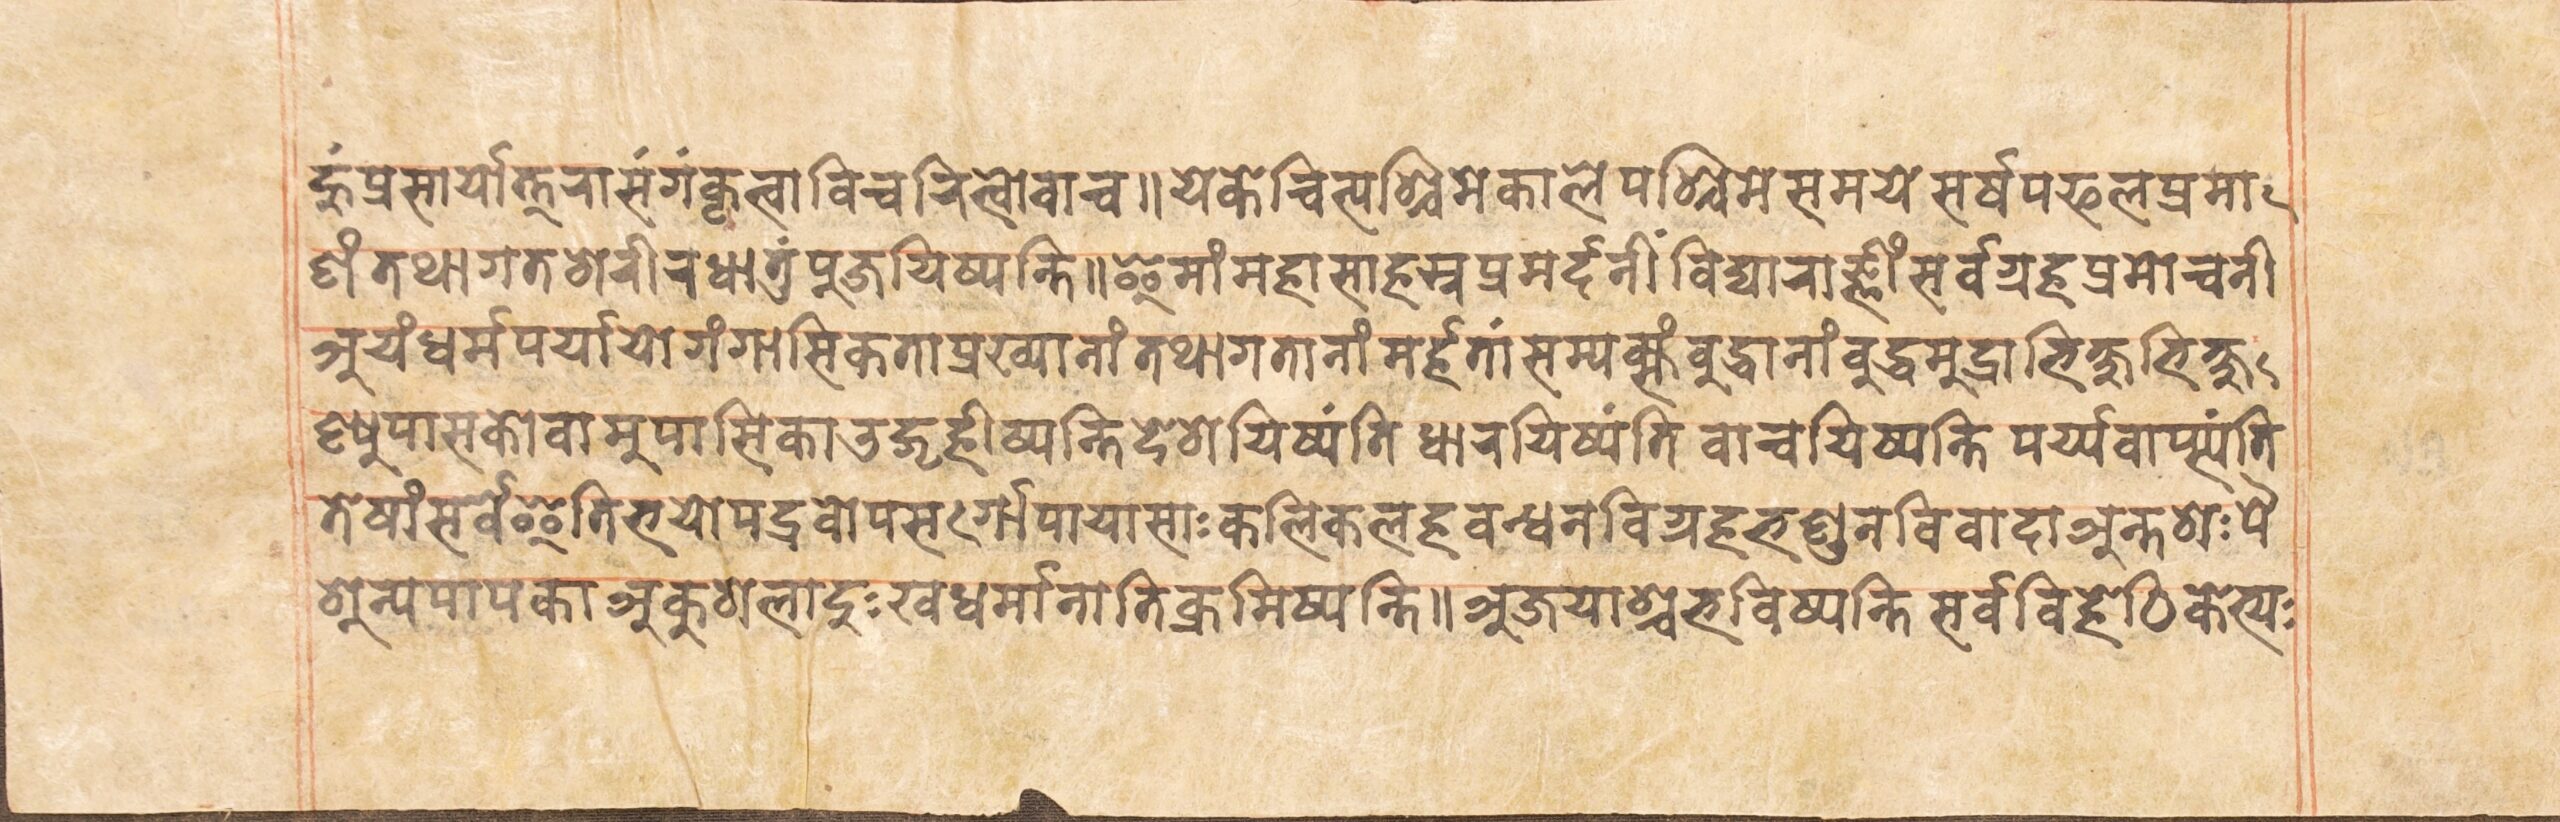 हुंप्रसार्योत्तरासंगंकृत्वाविचरित्वोवाच॥येकेचित्पश्चिमेकालेपश्चिमेसमयेसर्षपफलप्रमा
णंतथागतशरीरधातुंपूजयिष्यन्ति॥इमांमहासाहस्रप्रमर्दनींविद्याराज्ञींसर्वग्रहप्रमोचनी
अयंधर्मपर्यायोगंगासिकताप्रख्यानांतथागतानांमर्हतांसम्यक्संबुद्धानांबुद्धमुद्राभिक्षुभिक्षु
ण्युपासकोवामुपासिकाउद्गृहीष्यन्तिदेशयिष्यंति धारयिष्यंति वाचयिष्यन्ति पर्य्यवाप्स्यंति
तेषांसर्वेईतिभयोपद्रवोपसर्गोपायासाःकलिकलहबन्धनविग्रहभण्डनविवादाअन्तशःपै
शून्यपापकाअकुशलादुःखधर्मानातिक्रमिष्यन्ति॥अजयाश्चभविष्यन्ति सर्वविहेठिकेभ्यः